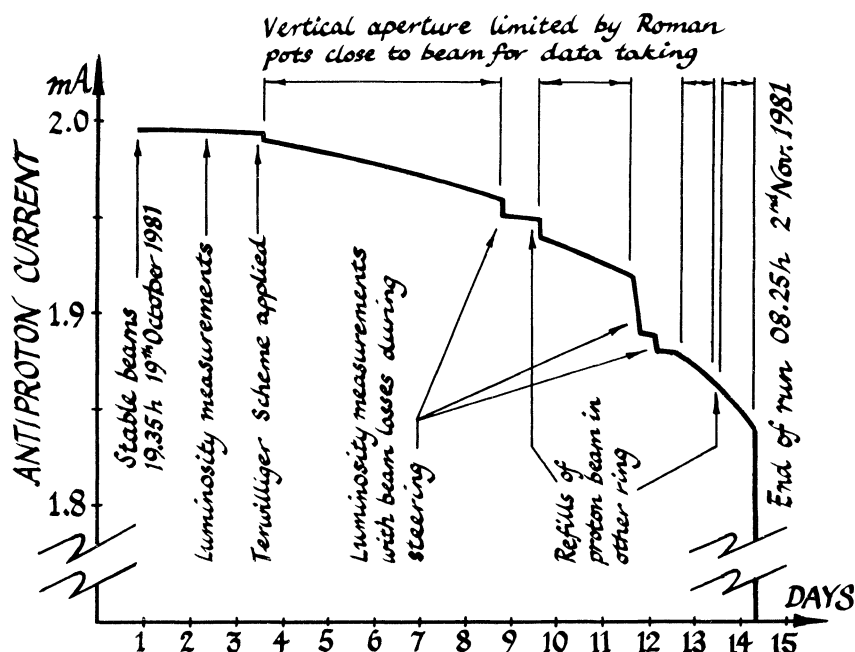 Vertical aperture limited by Roman
pots close to beam for data taking
mA
2.0
1.9
1.8
ANTIPROTON CURRENT
Stable beams
19.35h 19th October 1981
Luminosity measurements
Terwilliger Scheme applied
Luminosity measurements
with beam losses during
steering
Refills of
proton beam in
other ring
End of run 08.25h 2nd Nov. 1981
DAYS
1 2 3 4 5 6 7 8 9 10 11 12 13 14 15